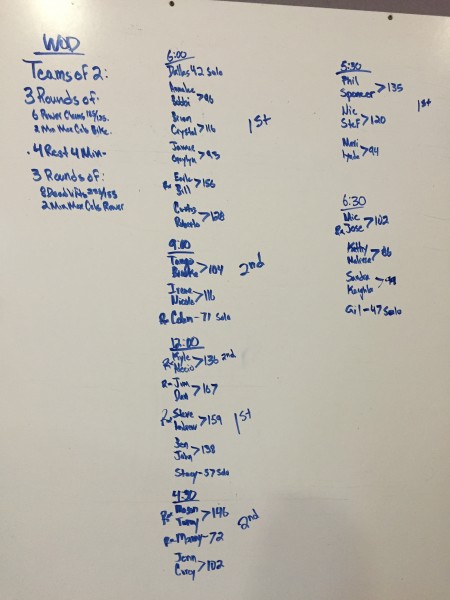 WOD
Teams of 2:
3 Rounds of:
6 Power Cleans
2 Min Max Cals Bike.
4 Rest 4 Min
3 Rounds of:
8 Deadlifts
2 Min Max Cals Rower
6:00
Dallas 42 Solo
Annalee
Bobbi >96
Brian
Crystal >116
1st
Jamie
>93
Rx Earle
Bill >156
Curtis
Roberto >128
9:00
Tango
>104
2nd
Irene
Nicole >116
Rx Colum - 71 Solo
12:00
Rx Kyle
>136 2nd
Rx Jim
Dan >167
Steve
Andrew >159
1st
Ben
John >138
Stacy - 37 Solo
4:30
Rx Mason
Tammy >146
2nd
Rx Manny - 72
Jenn
Corey >102
5:30
Phil
Spencer >135
1st
Nic
Stef >120
Meri
>94
6:30
Mic
Rx Jose >102
Kathy
Melissa >86
Sandra
Kayla
Gil - 47 Solo